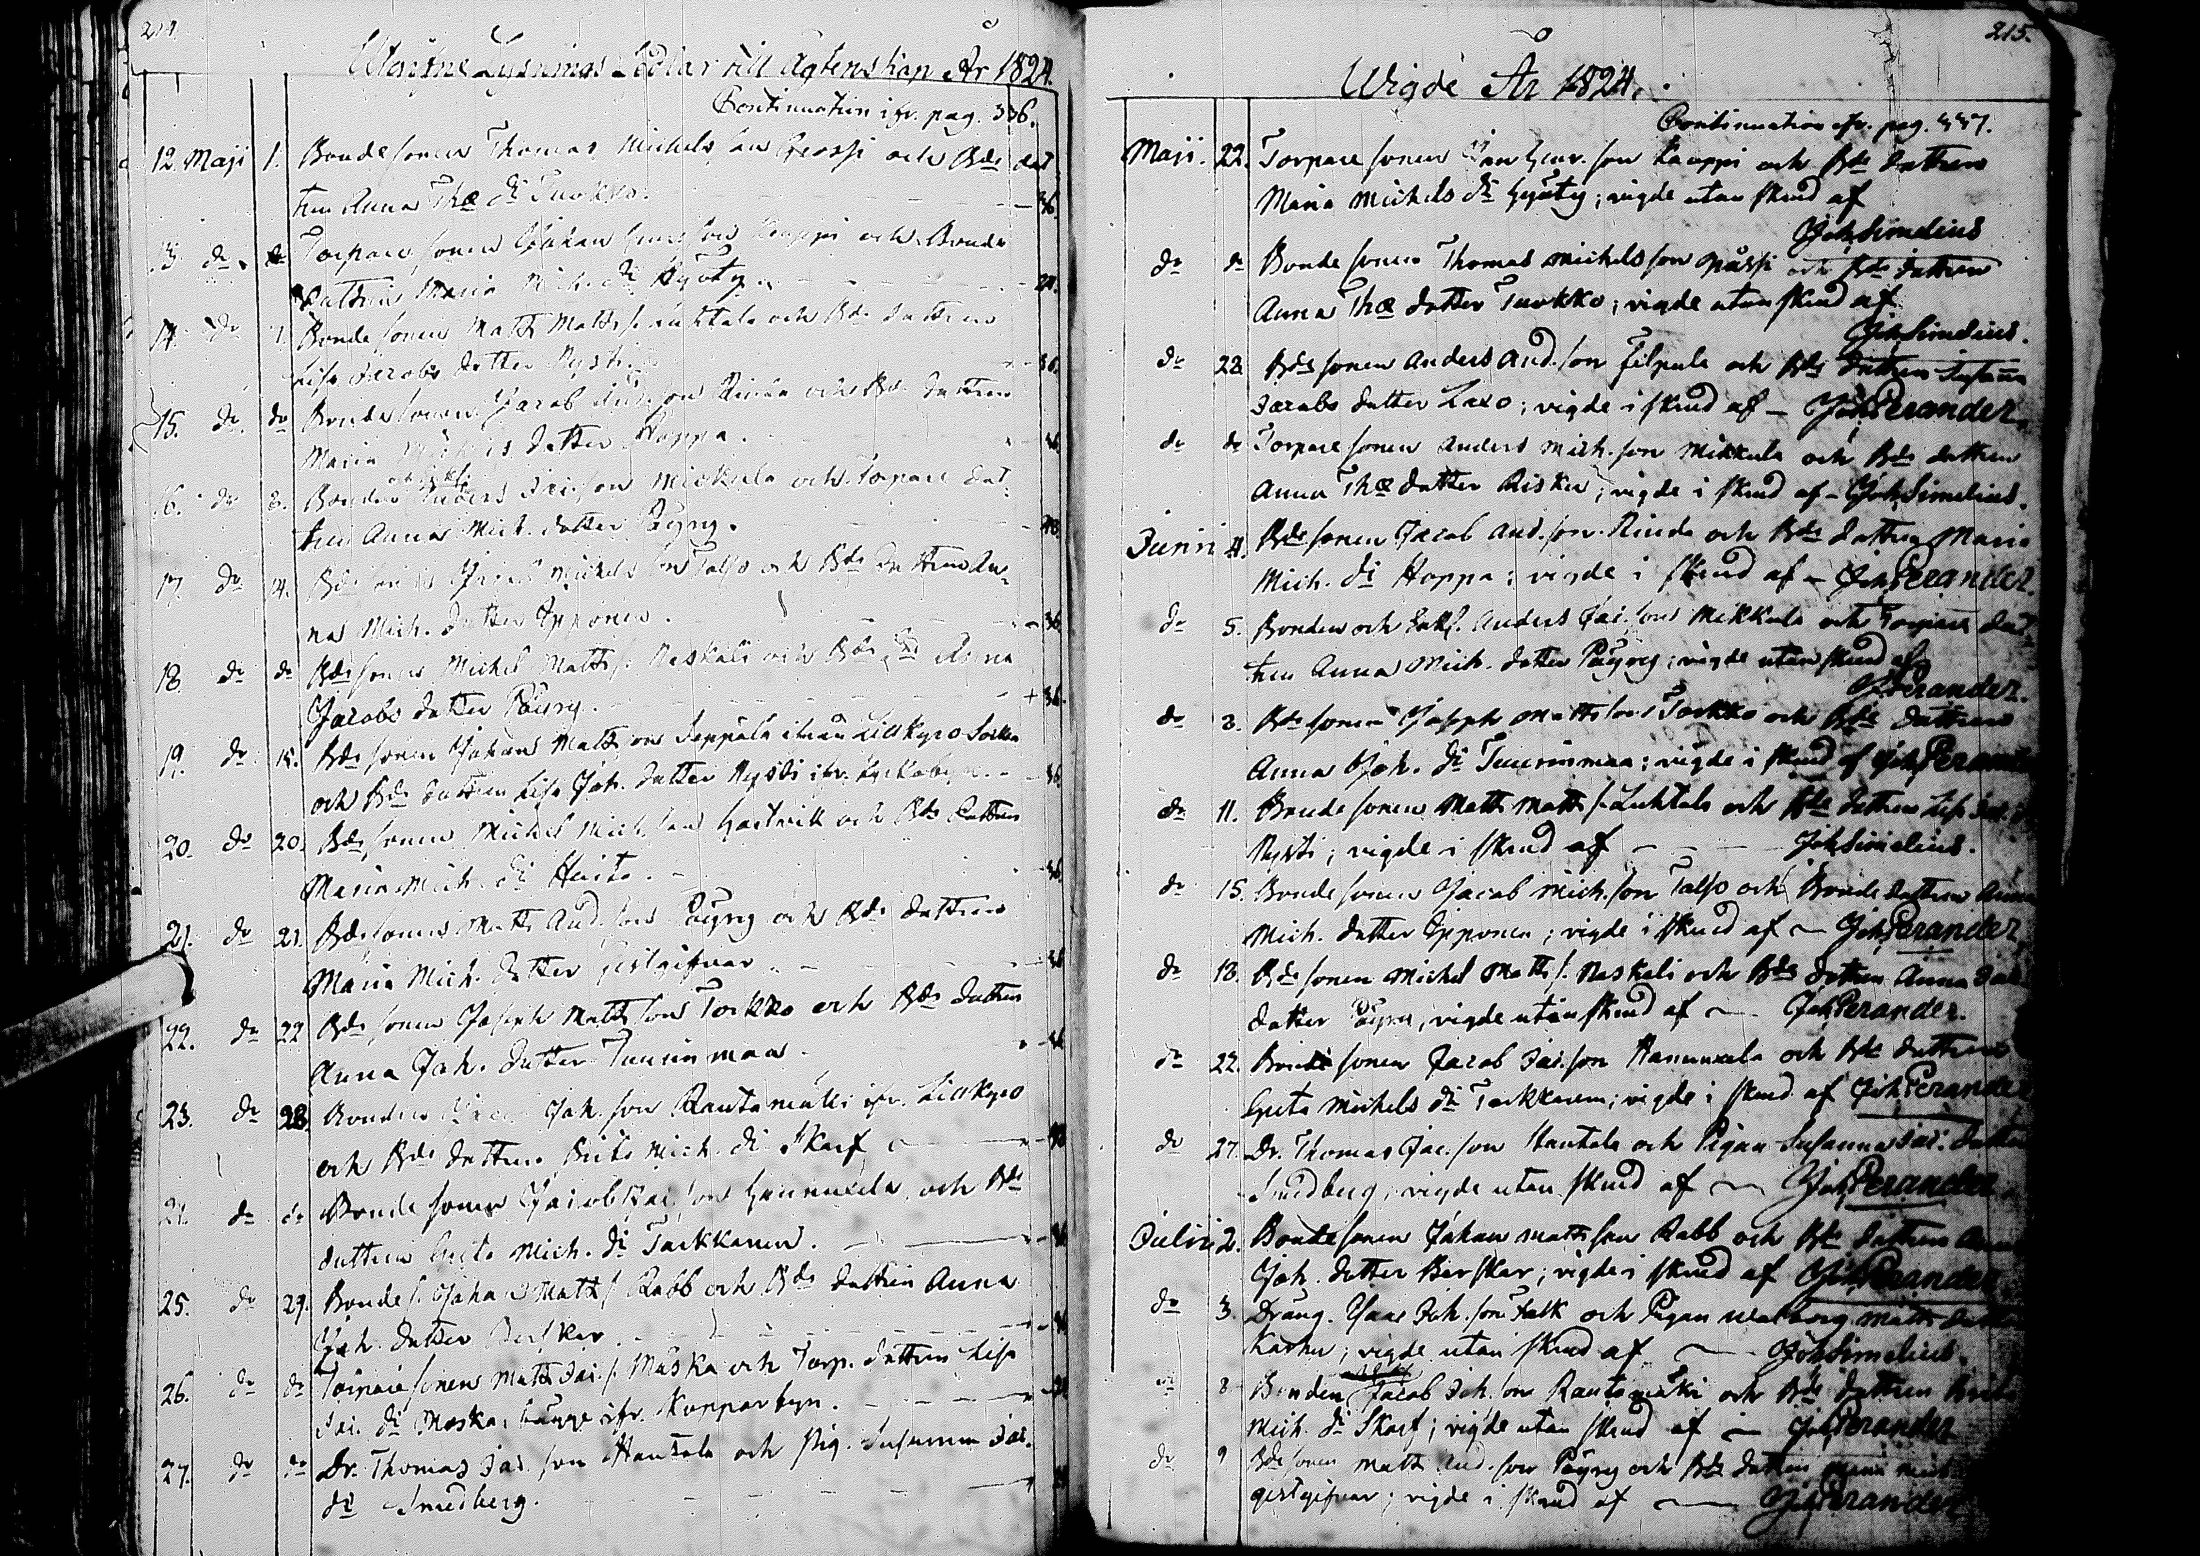 214.
Lysnings Sedlar till Ägtenskap År 1824.
Continuation ifr. pag. 336.
12. Maji 1. Bondesonen Thomas Michels son och Bde dot
tren Anna Thæ dr Turkko. 36.
13. do do Torpare sonen Johan son Kauppi och Bonde
dottren Maria Mich. dr Hyöty. 24.
14. do 7. Bonde sonen Matts Matts s. Luhtala och Bde dottren
Lisa Jacobs dotter Rysti. 36.
15. do do Bonde sonen Jacob And. son Rinda och Bde dottren
Maria Michels dotter Hoppa. 36.
16. do 8. Bonden Anders Jac. son Mickula och Torpare dot-
tren Anna Mich. dotter Päyry.
17. do 14. Bde sonen Jacob Michels son Talso och Bde dottren An-
na Mich. dotter Ypponen. 36.
18. do do Bde sonen Michel Matts s. Naskali och Bde Anna
Jacobs dotter Päyry. 36.
19. do 15. Bde sonen Johan Matts son Seppälä ifrån Lillkyro Sockn
och Bde dottren Lisa Joh. dotter Rysti ifr. 36
20. do 20. Bde sonen Michel Mich. son Hartvik och Bde dottren
Maria Mich. dr Heita. 36.
21. do 21. Bde sonen Matts And. son Päyry och Bde dottren
Maria Mich. dotter Gestgifvar. 36
22. do 22. Bde sonen Joseph Matts son Torkko och Bde dottren
Anna Joh. dotter Tuurinmaa. 36
23. do 28. Bonden Jacob Joh. son Rautamäki ifr. Lillkyro
och Bde dottren Brita Mich. dr Skarf
24. do do Bonde sonen Jacob Jac. son Hannuxela och Bde
dottren Greta Mich. dr Tarkkanen.
25. do 29. Bonde s. Johan Matts s. Rabb och Bde dottren Anna
Joh. dotter Berskar.
26. do do Torpare sonen Matts Jac. s. Maska och Torp. dottren Lisa
Jac. dr Maska, ifr. Kopparbyn.
27. do do Dr. Thomas Jac. son Hautala och Pig. Susanna Jac.
dr Smedberg.
215.
Wigde År 1824.
Continuation ifr. pag.
Maji. 22. Torpare sonen son Kauppi och Bde dottren
Maria Michels dr Hyöty; vigde utan skrud af
Joh Simelius
do do Bonde sonen Thomas Michels son och Bde dottren
Anna Thæ dotter Turkko; vigde utan skrud af
Joh Simelius.
do 23. Bde sonen Anders And. son Filpula och Bde dottren Susanna
Jacobs dotter Laxo; vigde i skrud af – Joh Perander.
do do Torpare sonen Anders Mich. son Mikkula och Bde dottren
Anna Thæ dotter Risku; vigde i skrud af – Joh Simelius.
Junii 4. Bde sonen Jacob And. son Rinda och Bde dottren Maria
Mich. dr Hoppa; vigde i skrud af – Joh Perander.
do 5. Bonden och Enkl. Anders Jac. son Mikkula och Torpare dot-
tren Anna Mich. dotter Päyry; vigde utan skrud af
Joh Perander.
do 8. Bde sonen Joseph Matts son Torkko och Bde dottren
Anna Joh. dr Tuurinmaa; vigde i skrud af Joh Perander
do 11. Bonde sonen Matts Matts s. Luhtala och Bde dottren Lisa Jac. dr
Rysti; vigde i skrud af – – – Joh Simelius.
do 15. Bonde sonen Jacob Mich. son Talso och Bonde dottren Anna
Mich. dotter Ypponen; vigde i skrud af – Joh Perander.
do 18. Bde sonen Michel Matts s. Naskali och Bde dottren Anna Jac
dotter Päyry, vigde utan skrud af – Joh Perander.
do 22. Bonde sonen Jacob Jac. son Hannuxela och Bde dottren
Greta Michels dr Tarkkanen; vigde i skrud af Joh Perander
do 27. Dr. Thomas Jac. son Hautala och Pigan Susanna Jac. dotter
Smedberg; vigde utan skrud af – Joh Perander
Julii 2. Bonde sonen Johan Matts son Rabb och Bde dottren Anna
Joh. dotter Berskar; vigde i skrud af Joh Perander
do 3. Dräng. Isaac Joh. son Falk och Pigan Walborg Matts dotter
Karhu; vigde utan skrud af – Joh Simelius.
do 8 Bonden Jacob Joh. son Rautamäki och Bde dottren Brita
Mich. dr Skarf; vigde utan skrud af – Joh Perander
do 9 Bde sonen Matts And. son Päyry och Bde dottren Maria Mich
Gestgifvar; vigde i skrud af – Joh Perander